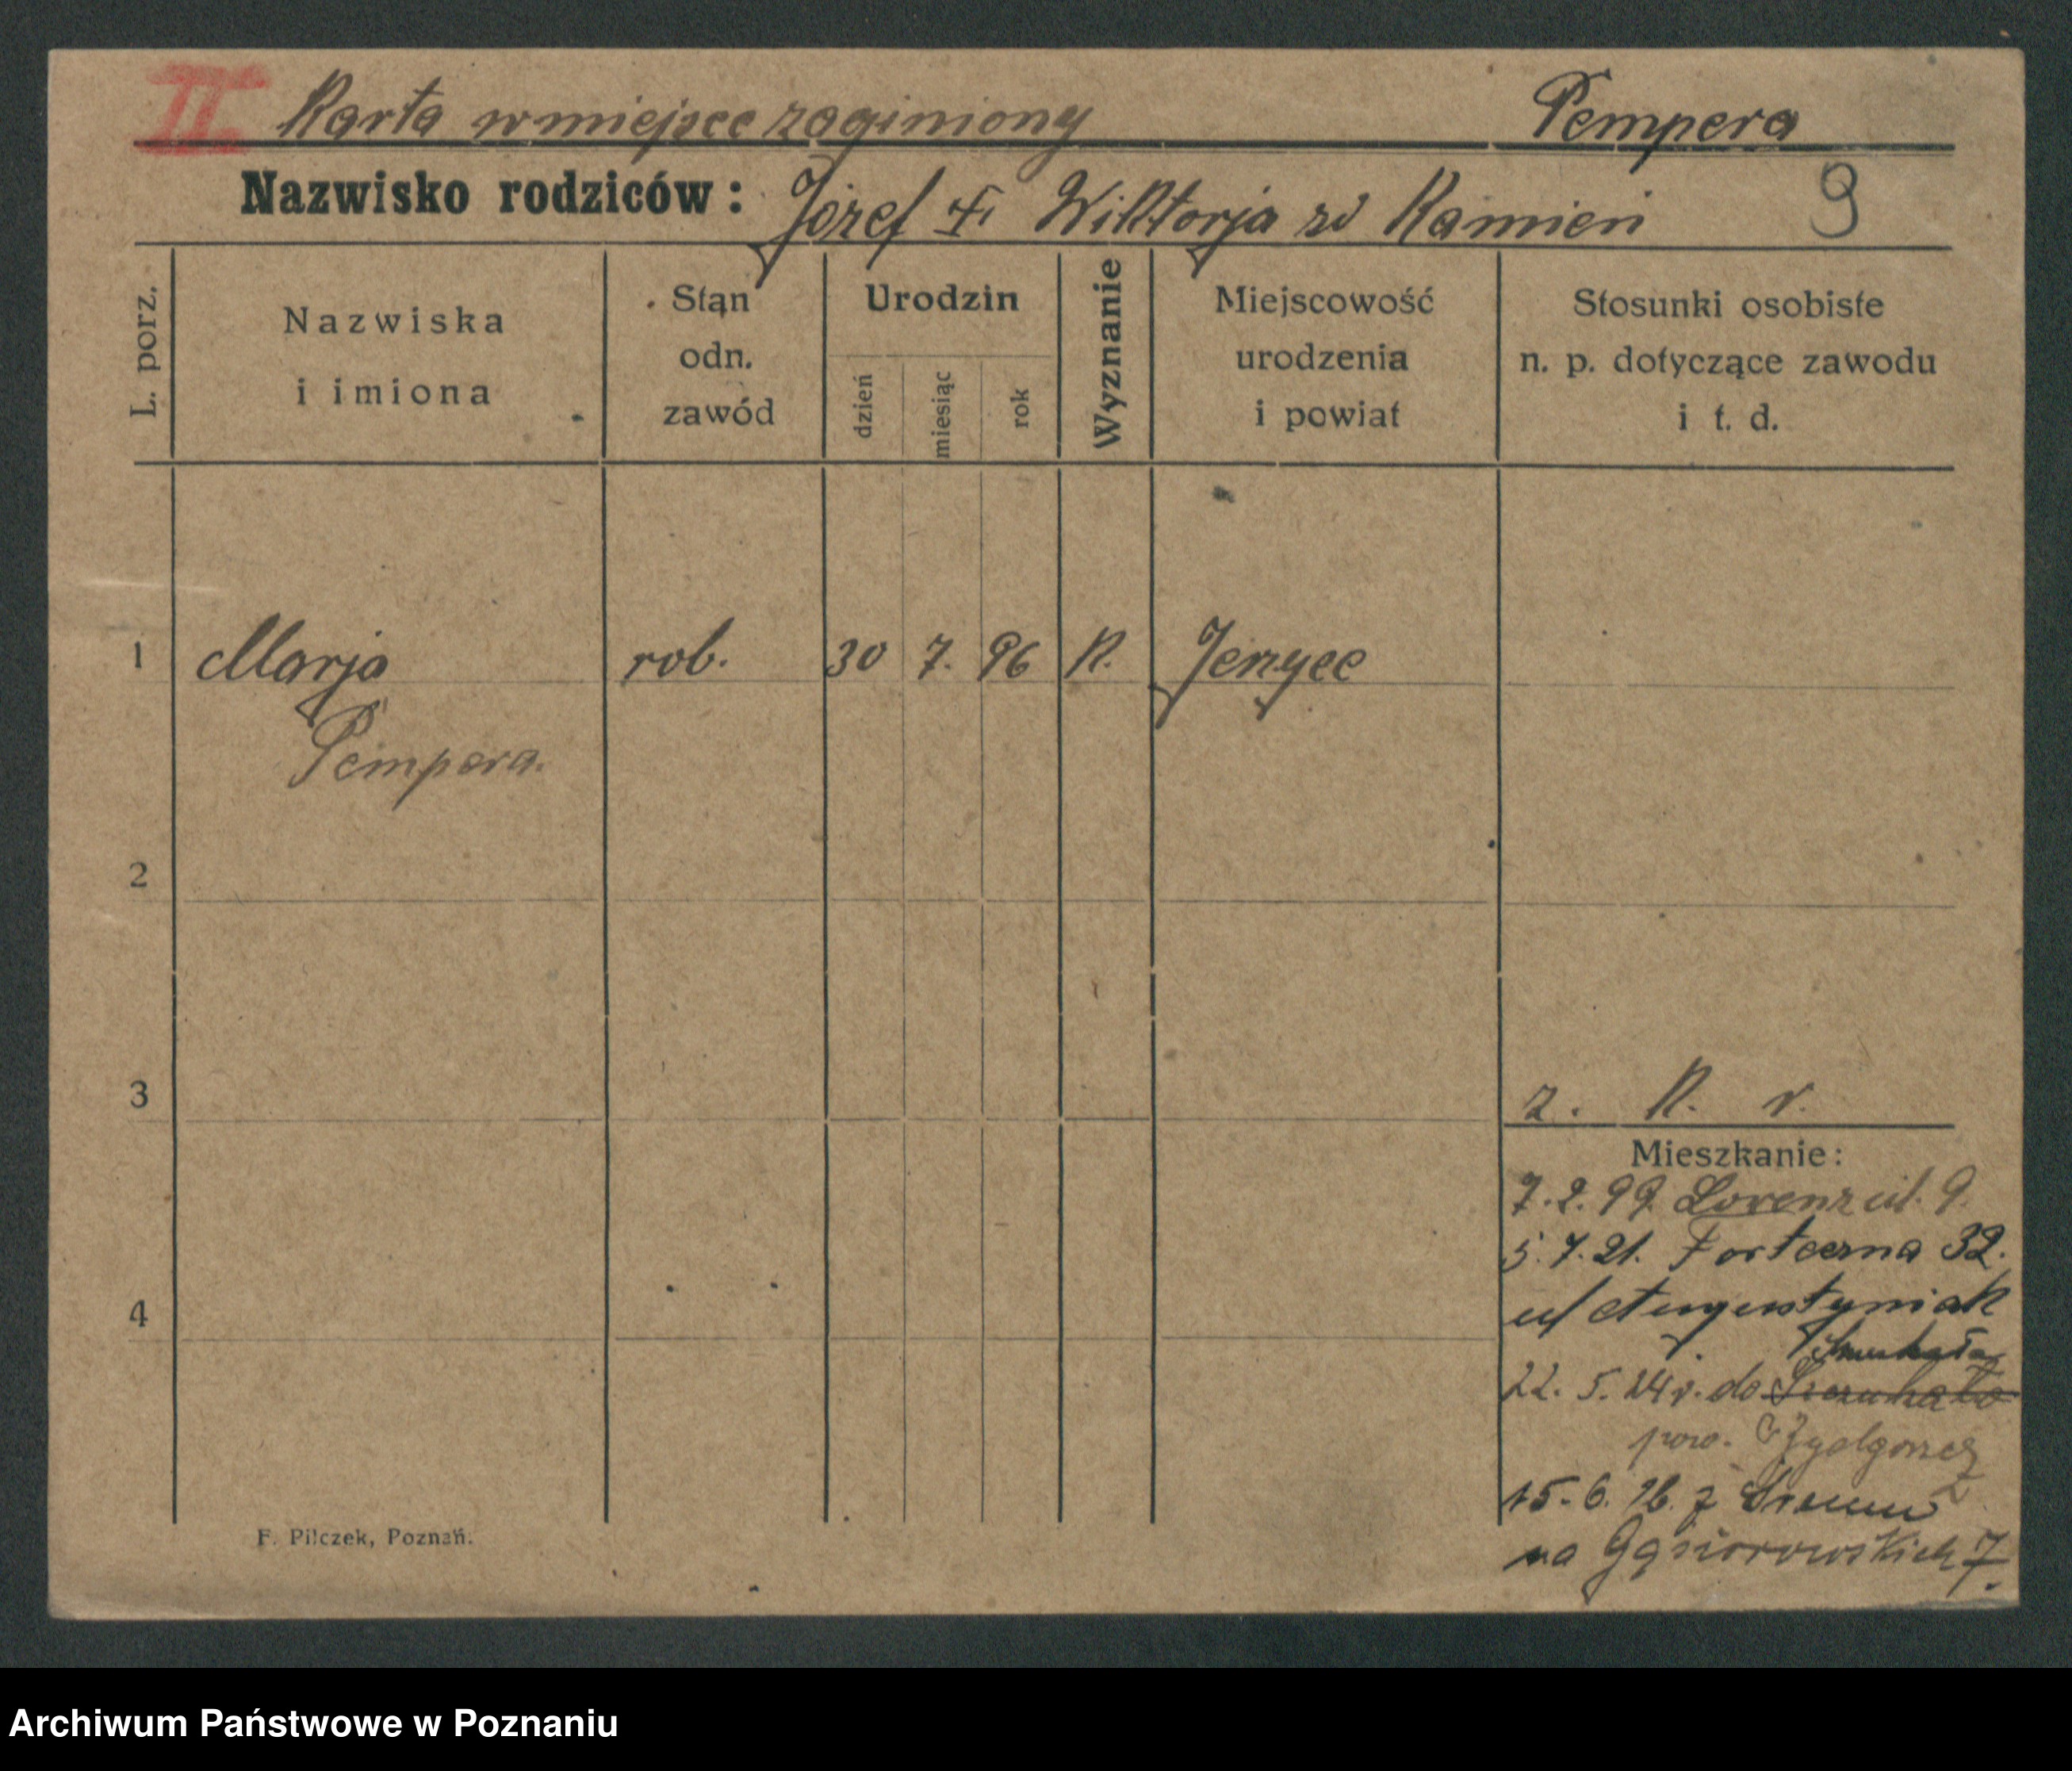 II Karta w miejsce zaginiony Pempera
Nazwisko rodziców: Józef Wiktorja zd Kamień 9
L. porz.
Nazwiska
i imiona
Stan
odn.
zawód
Urodzin
dzień
miesiąc
rok
Wyznanie
Miejscowość
urodzenia
i powiat
Stosunki osobiste
n. p. dotyczące zawodu
i t. d.
1 Marja rob. 30 7. 96 K. Jerzyce
Pempera.
2
3
z. K. r.
Mieszkanie:
7.2.99. Lorenz ul. 9.
5.7.21. Forteczna 32.
u/ Augustyniak
Smukała
22. 5. 24 r. do
pow. Bydgoszcz
15. 6. 26. z Śremu
na Gąsiorowskich 7.
4
F. Pilczek, Poznań.
Archiwum Państwowe w Poznaniu